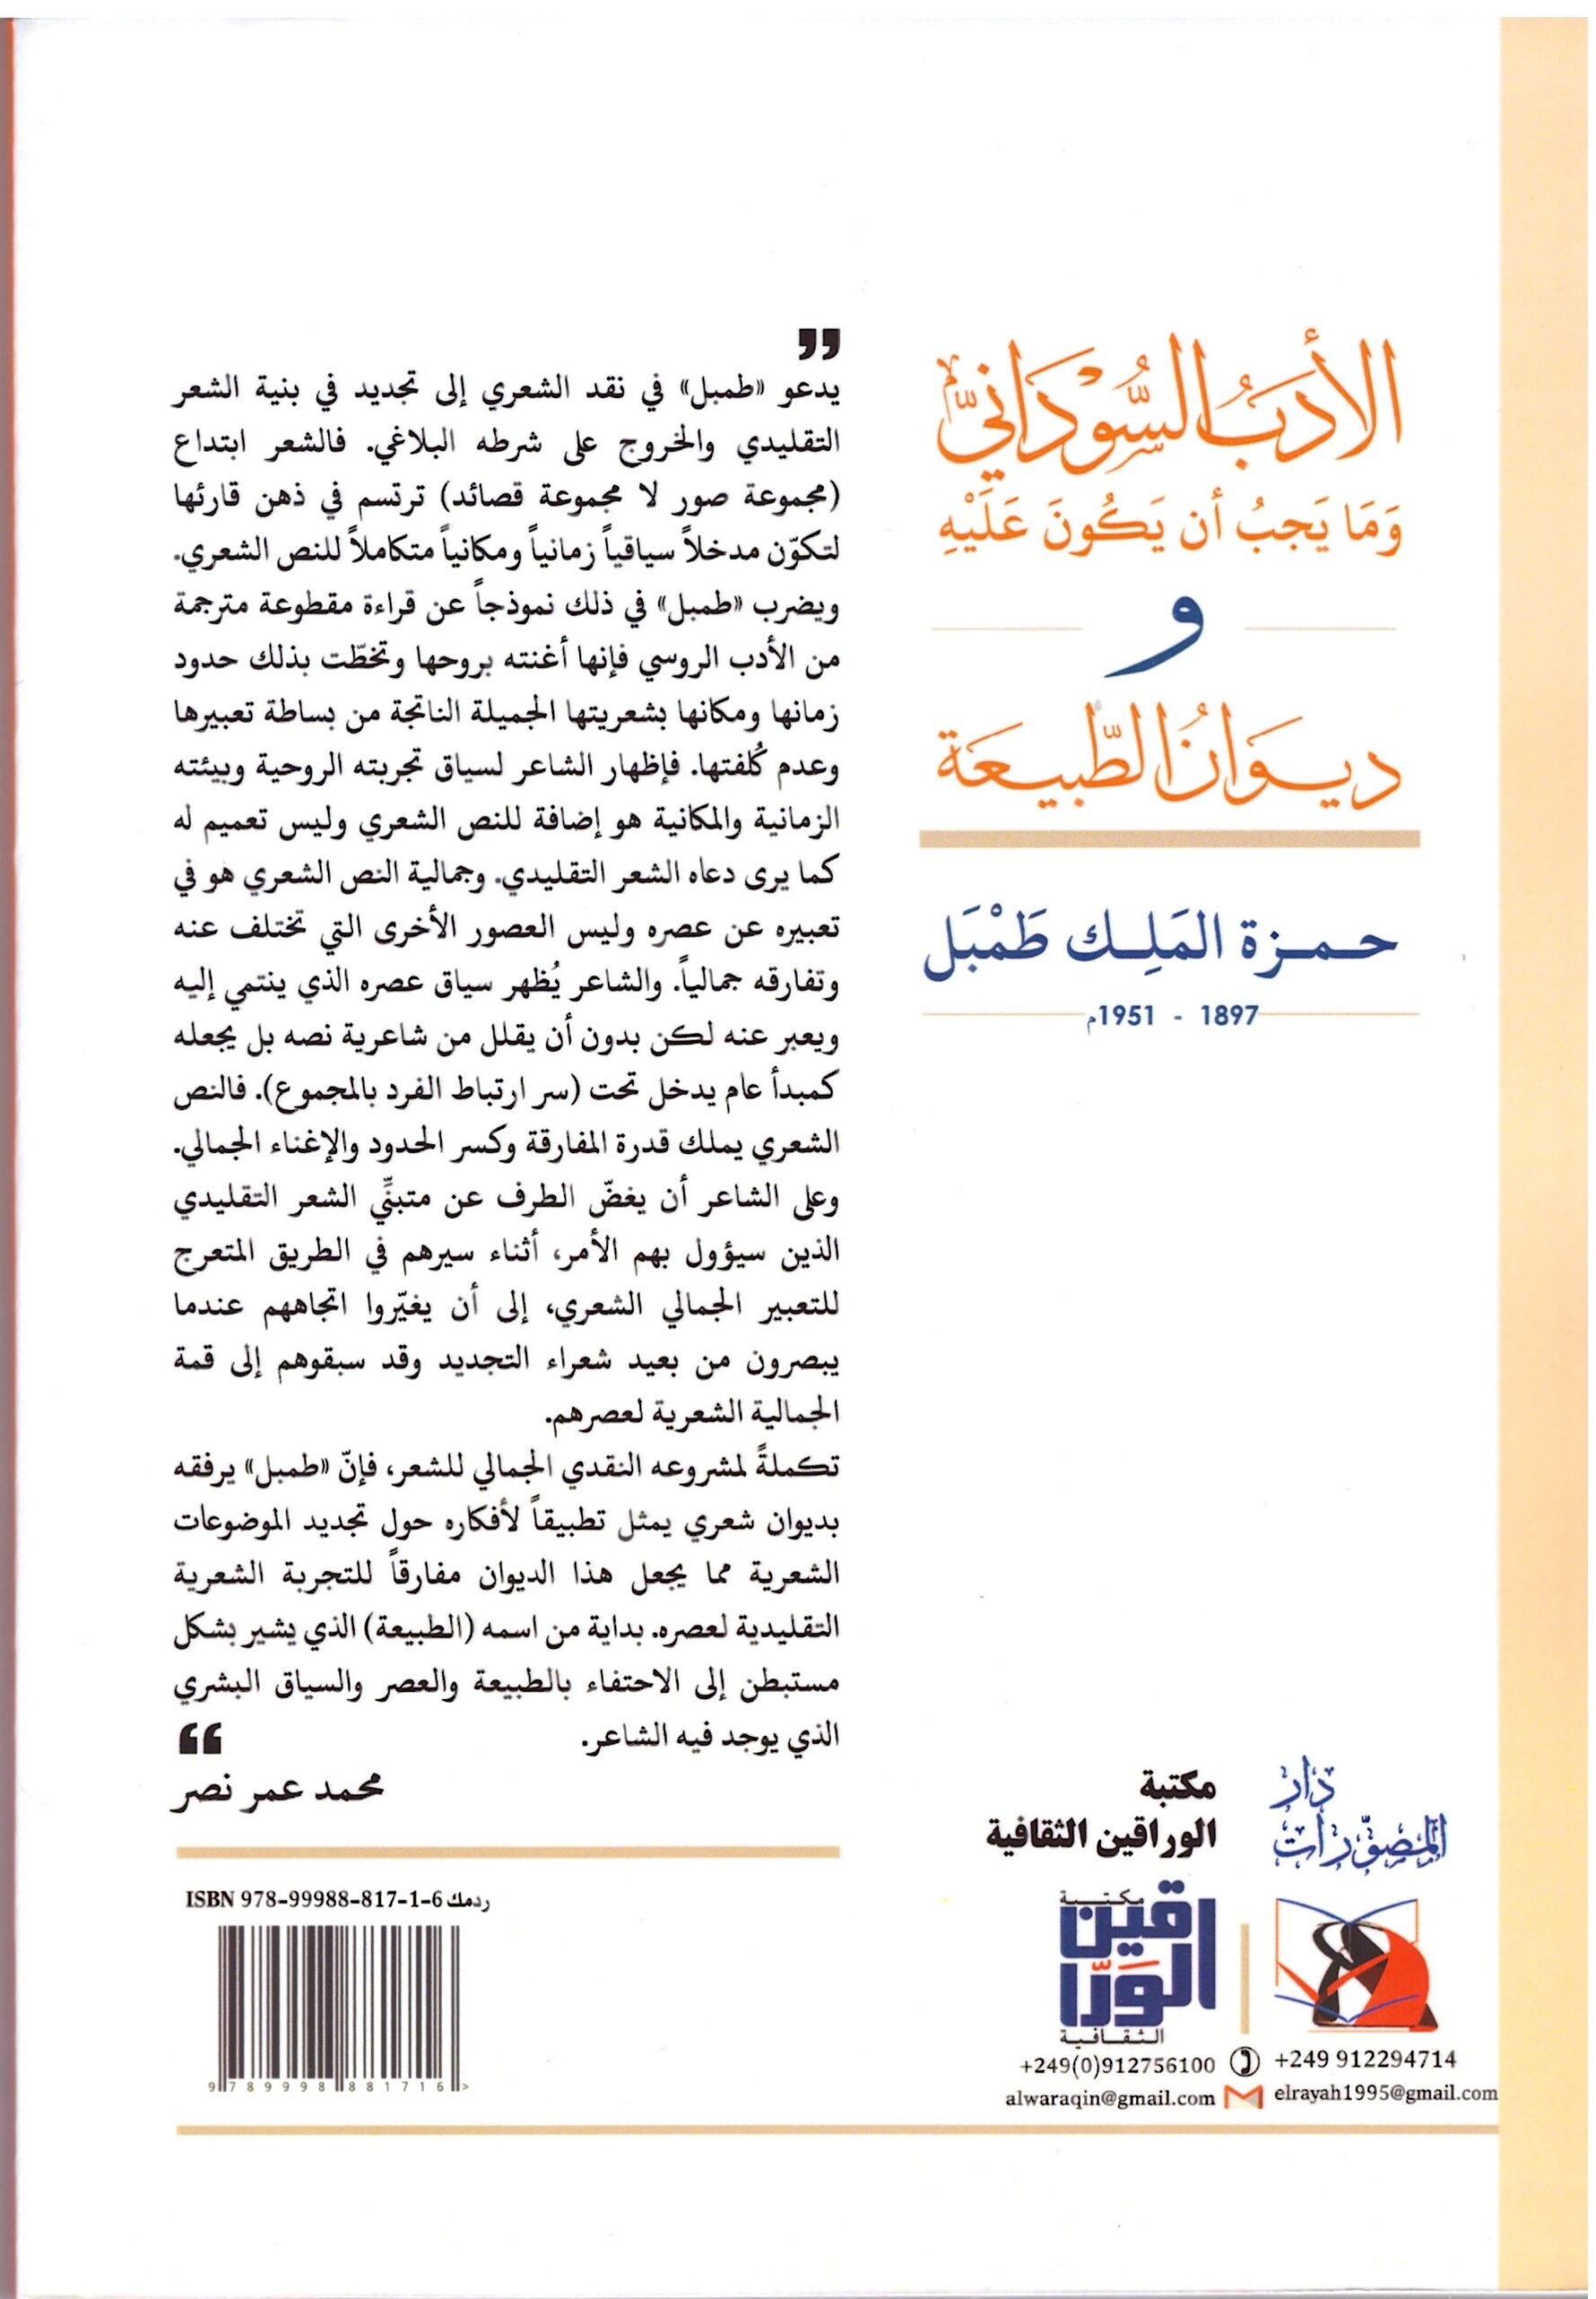 الأدبُ السُّوْدَانيّ
وَمَا يَجبُ أن يَكُونَ عَلَيْهِ
و
ديـوَانُ الطَّبيـعَة
حـمـزة المَلِـك طَمْبَل
1897 - 1951م
”
يدعو «طمبل» في نقد الشعري إلى تجديد في بنية الشعر
التقليدي والخروج على شرطه البلاغي. فالشعر ابتداع
(مجموعة صور لا مجموعة قصائد) ترتسم في ذهن قارئها
لتكوّن مدخلاً سياقياً زمانياً ومكانياً متكاملاً للنص الشعري.
ويضرب «طمبل» في ذلك نموذجاً عن قراءة مقطوعة مترجمة
من الأدب الروسي فإنها أغنته بروحها وتخطّت بذلك حدود
زمانها ومكانها بشعريتها الجميلة الناتجة من بساطة تعبيرها
وعدم كُلفتها. فإظهار الشاعر لسياق تجربته الروحية وبيئته
الزمانية والمكانية هو إضافة للنص الشعري وليس تعميم له
كما يرى دعاه الشعر التقليدي. وجمالية النص الشعري هو في
تعبيره عن عصره وليس العصور الأخرى التي تختلف عنه
وتفارقه جمالياً. والشاعر يُظهر سياق عصره الذي ينتمي إليه
ويعبر عنه لكن بدون أن يقلل من شاعرية نصه بل يجعله
كمبدأ عام يدخل تحت (سر ارتباط الفرد بالمجموع). فالنص
الشعري يملك قدرة المفارقة وكسر الحدود والإغناء الجمالي.
وعلى الشاعر أن يغضّ الطرف عن متبنِّي الشعر التقليدي
الذين سيؤول بهم الأمر، أثناء سيرهم في الطريق المتعرج
للتعبير الجمالي الشعري، إلى أن يغيّروا اتجاههم عندما
يبصرون من بعيد شعراء التجديد وقد سبقوهم إلى قمة
الجمالية الشعرية لعصرهم.
تكملةً لمشروعه النقدي الجمالي للشعر، فإنّ «طمبل» يرفقه
بديوان شعري يمثل تطبيقاً لأفكاره حول تجديد الموضوعات
الشعرية مما يجعل هذا الديوان مفارقاً للتجربة الشعرية
التقليدية لعصره. بداية من اسمه (الطبيعة) الذي يشير بشكل
مستبطن إلى الاحتفاء بالطبيعة والعصر والسياق البشري
الذي يوجد فيه الشاعر.
“
محمد عمر نصر
ردمك ISBN 978-99988-817-1-6
9 789998 881716 >
دَار
المُصَوَّرَات
+249 912294714
elrayah1995@gmail.com
مكتبة
الوراقين الثقافية
مكتـبـة
الورّاقين
الثـقـافـيـة
+249(0)912756100
alwaraqin@gmail.com